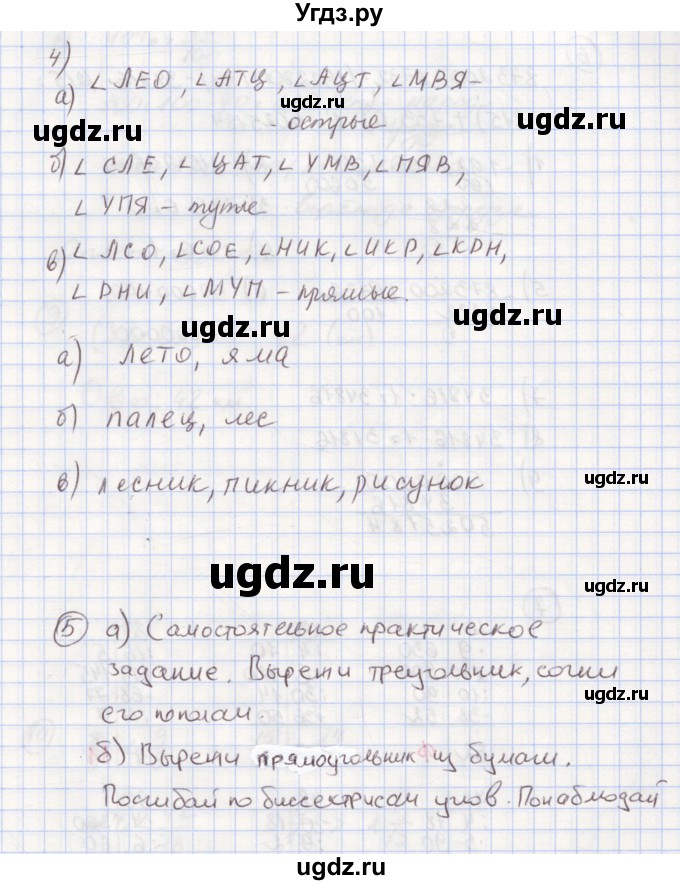 Угдз.ру
4)
а) ∠ ЛЕО, ∠ АТЦ, ∠ АЦТ, ∠ МВЯ–
угдз.ру
ugdz.ru
ugdz.ru
– острые
ugdz.ru
б) ∠ СЛЕ, ∠ ЦАТ, ∠ УМВ, ∠ НЯВ,
∠ УПЯ – тупые
в) ∠ ЛСО, ∠ СОЕ, ∠ НИК, ∠ ИКР, ∠ КРН,
∠ РНИ, ∠ МУН – прямые.
ugdz.ru
ugdz.ru
а) лето, яма
б) палец, лес
в) лесник, пикник, рисунок
ugdz.ru
ugdz.ru
ugdz.ru
5 а) Самостоятельное практическое
задание. Вырежи треугольник, согни
его пополам.
ugdz.ru
б) Вырежи прямоугольник из бумаги.
Посгибай по биссектрисам углов. Понаблюдай
ugdz.ru